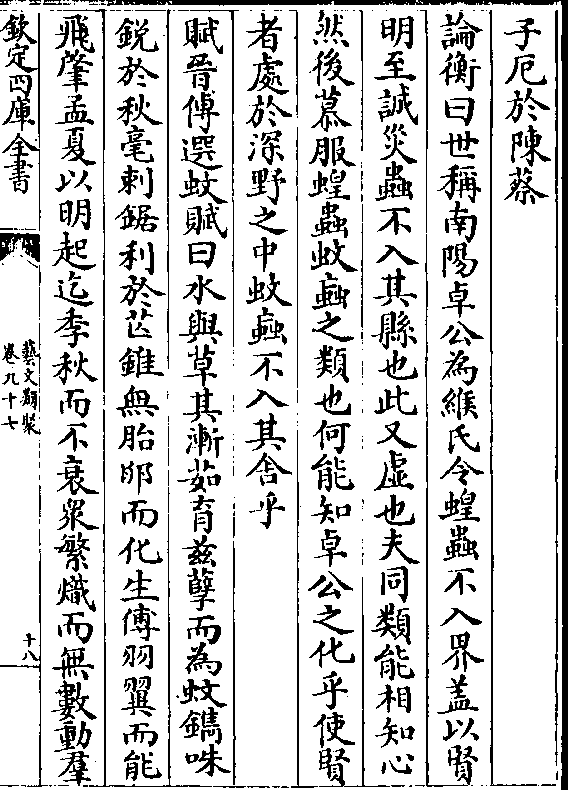 子厄於陳蔡
論衡曰世稱南陽卓公為緱氏令蝗蟲不入界盖以賢
明至誠災蟲不入其縣也此又虛也夫同類能相知心
然後慕服蝗蟲蚊蝱之類也何能知卓公之化乎使賢
者處於深野之中蚊蝱不入其舍乎
賦晉傅選蚊賦曰水與草其漸茹育兹孽而為蚊鐫味
銳於秋毫刺鋸利於芒錐無胎卵而化生傅羽翼而能
飛肇孟夏以明起迄季秋而不衰衆繁熾而無數動羣
欽定四庫全書
藝文類聚
卷九十七
十八